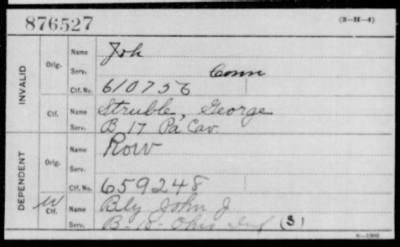 876527 (3-H-4)
INVALID
Orig. Name Joh
Serv. Conn
Ctf. No. 610756
Ctf. Name Struble, George
Serv. B 17 Pa Cav
DEPENDENT
Orig. Name Row
Serv.
Ctf. No. 659248
W Ctf. Name Bly John J
Serv. B- Ohio Inf (3)